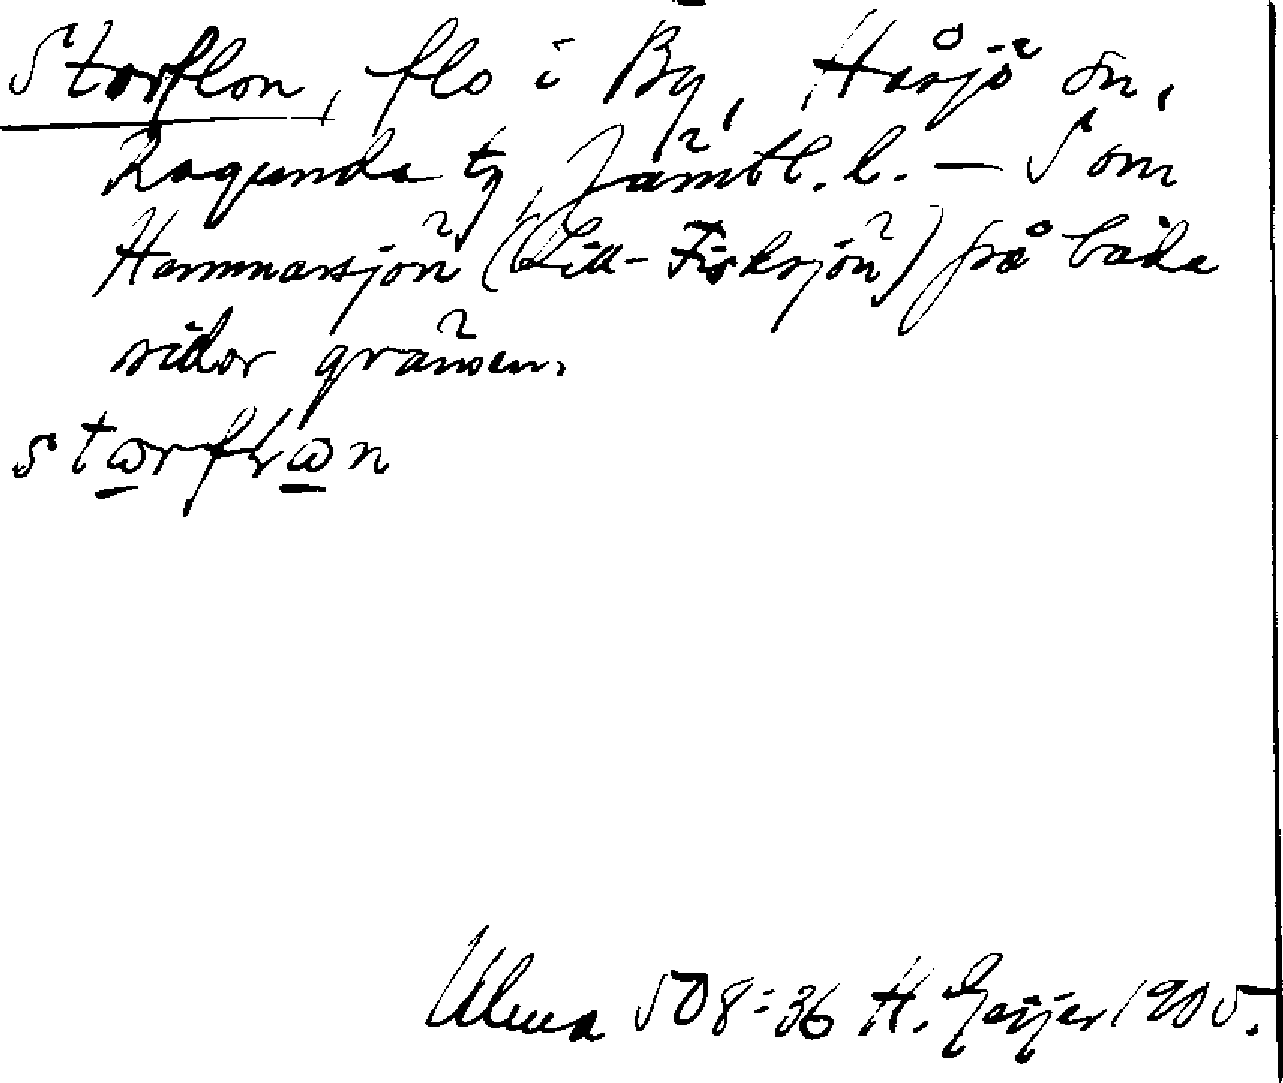 Storflon, flo i By, Håsjö sn,
Ragunda tg, Jämtl. l. — Som
Hammarsjön (Lill-Fisksjön) på båda
sidor gränsen.
stωrfłωn
Ulma 508:36 H. Geijer 1905.